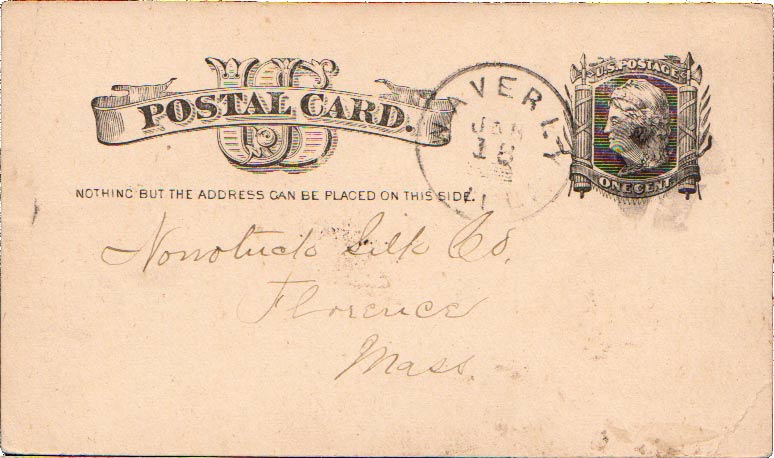 US
POSTAL CARD.
U.S. POSTAGE
ONE CENT
WAVERLY
JAN
NOTHING BUT THE ADDRESS CAN BE PLACED ON THIS SIDE.
Nonotuck Silk Co.
Florence
Mass.